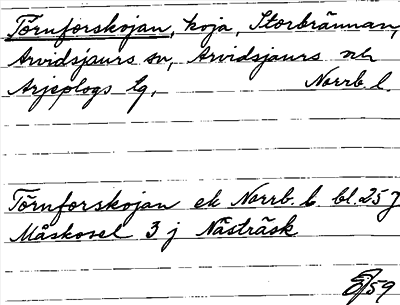 Törnforskojan, koja, Storbrännan,
Arvidsjaurs sn, Arvidsjaurs och
Arjeplogs tg, Norrb. l.
Törnforskojan ek Norrb. l. bl. 257
Måskosel 3 j Nästräsk
59